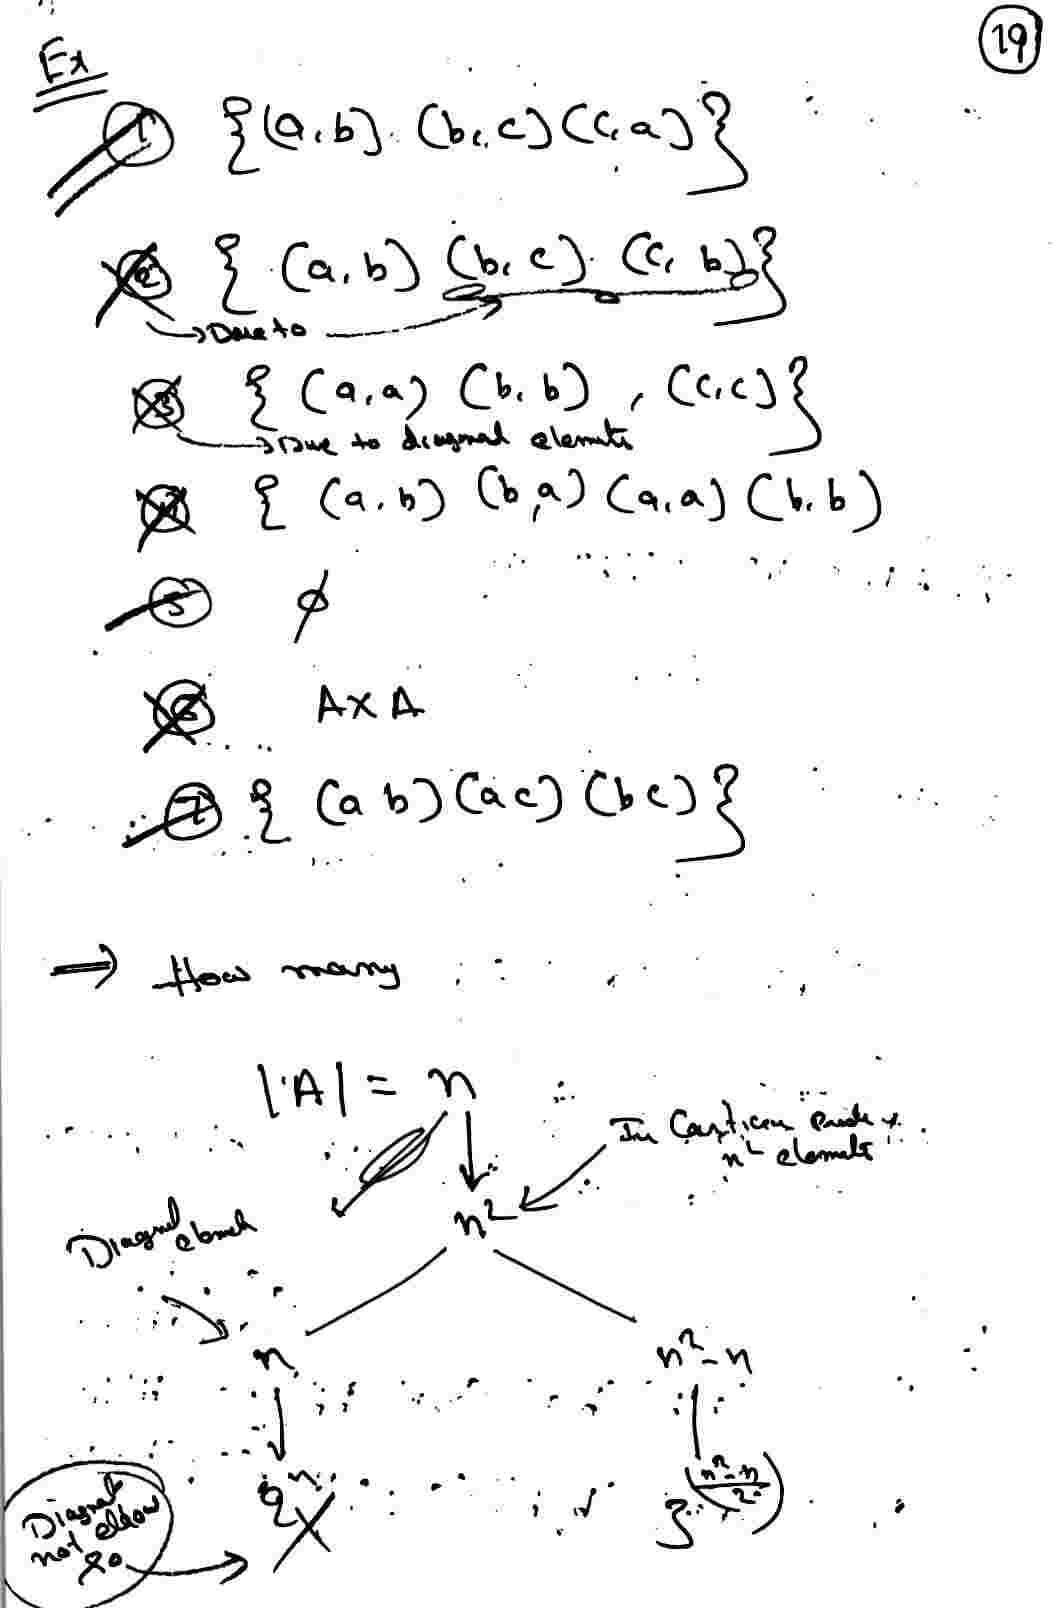 19
Ex
1 {(a,b). (b,c) (c,a)}
2 { (a,b) (b,c). (c,b)}
→ Due to
3 { (a,a) (b,b) , (c,c)}
→ Due to diagonal elements
4 { (a,b) (b,a) (a,a) (b,b)
5 φ
6 A×A
7 { (a b) (a c) (b c) }
⇒ How many
|A| = n
In
n² elements
n²
Diagonal
n n²-n
2ⁿ 3^((n²-n)/2)
Diagonal
not
so